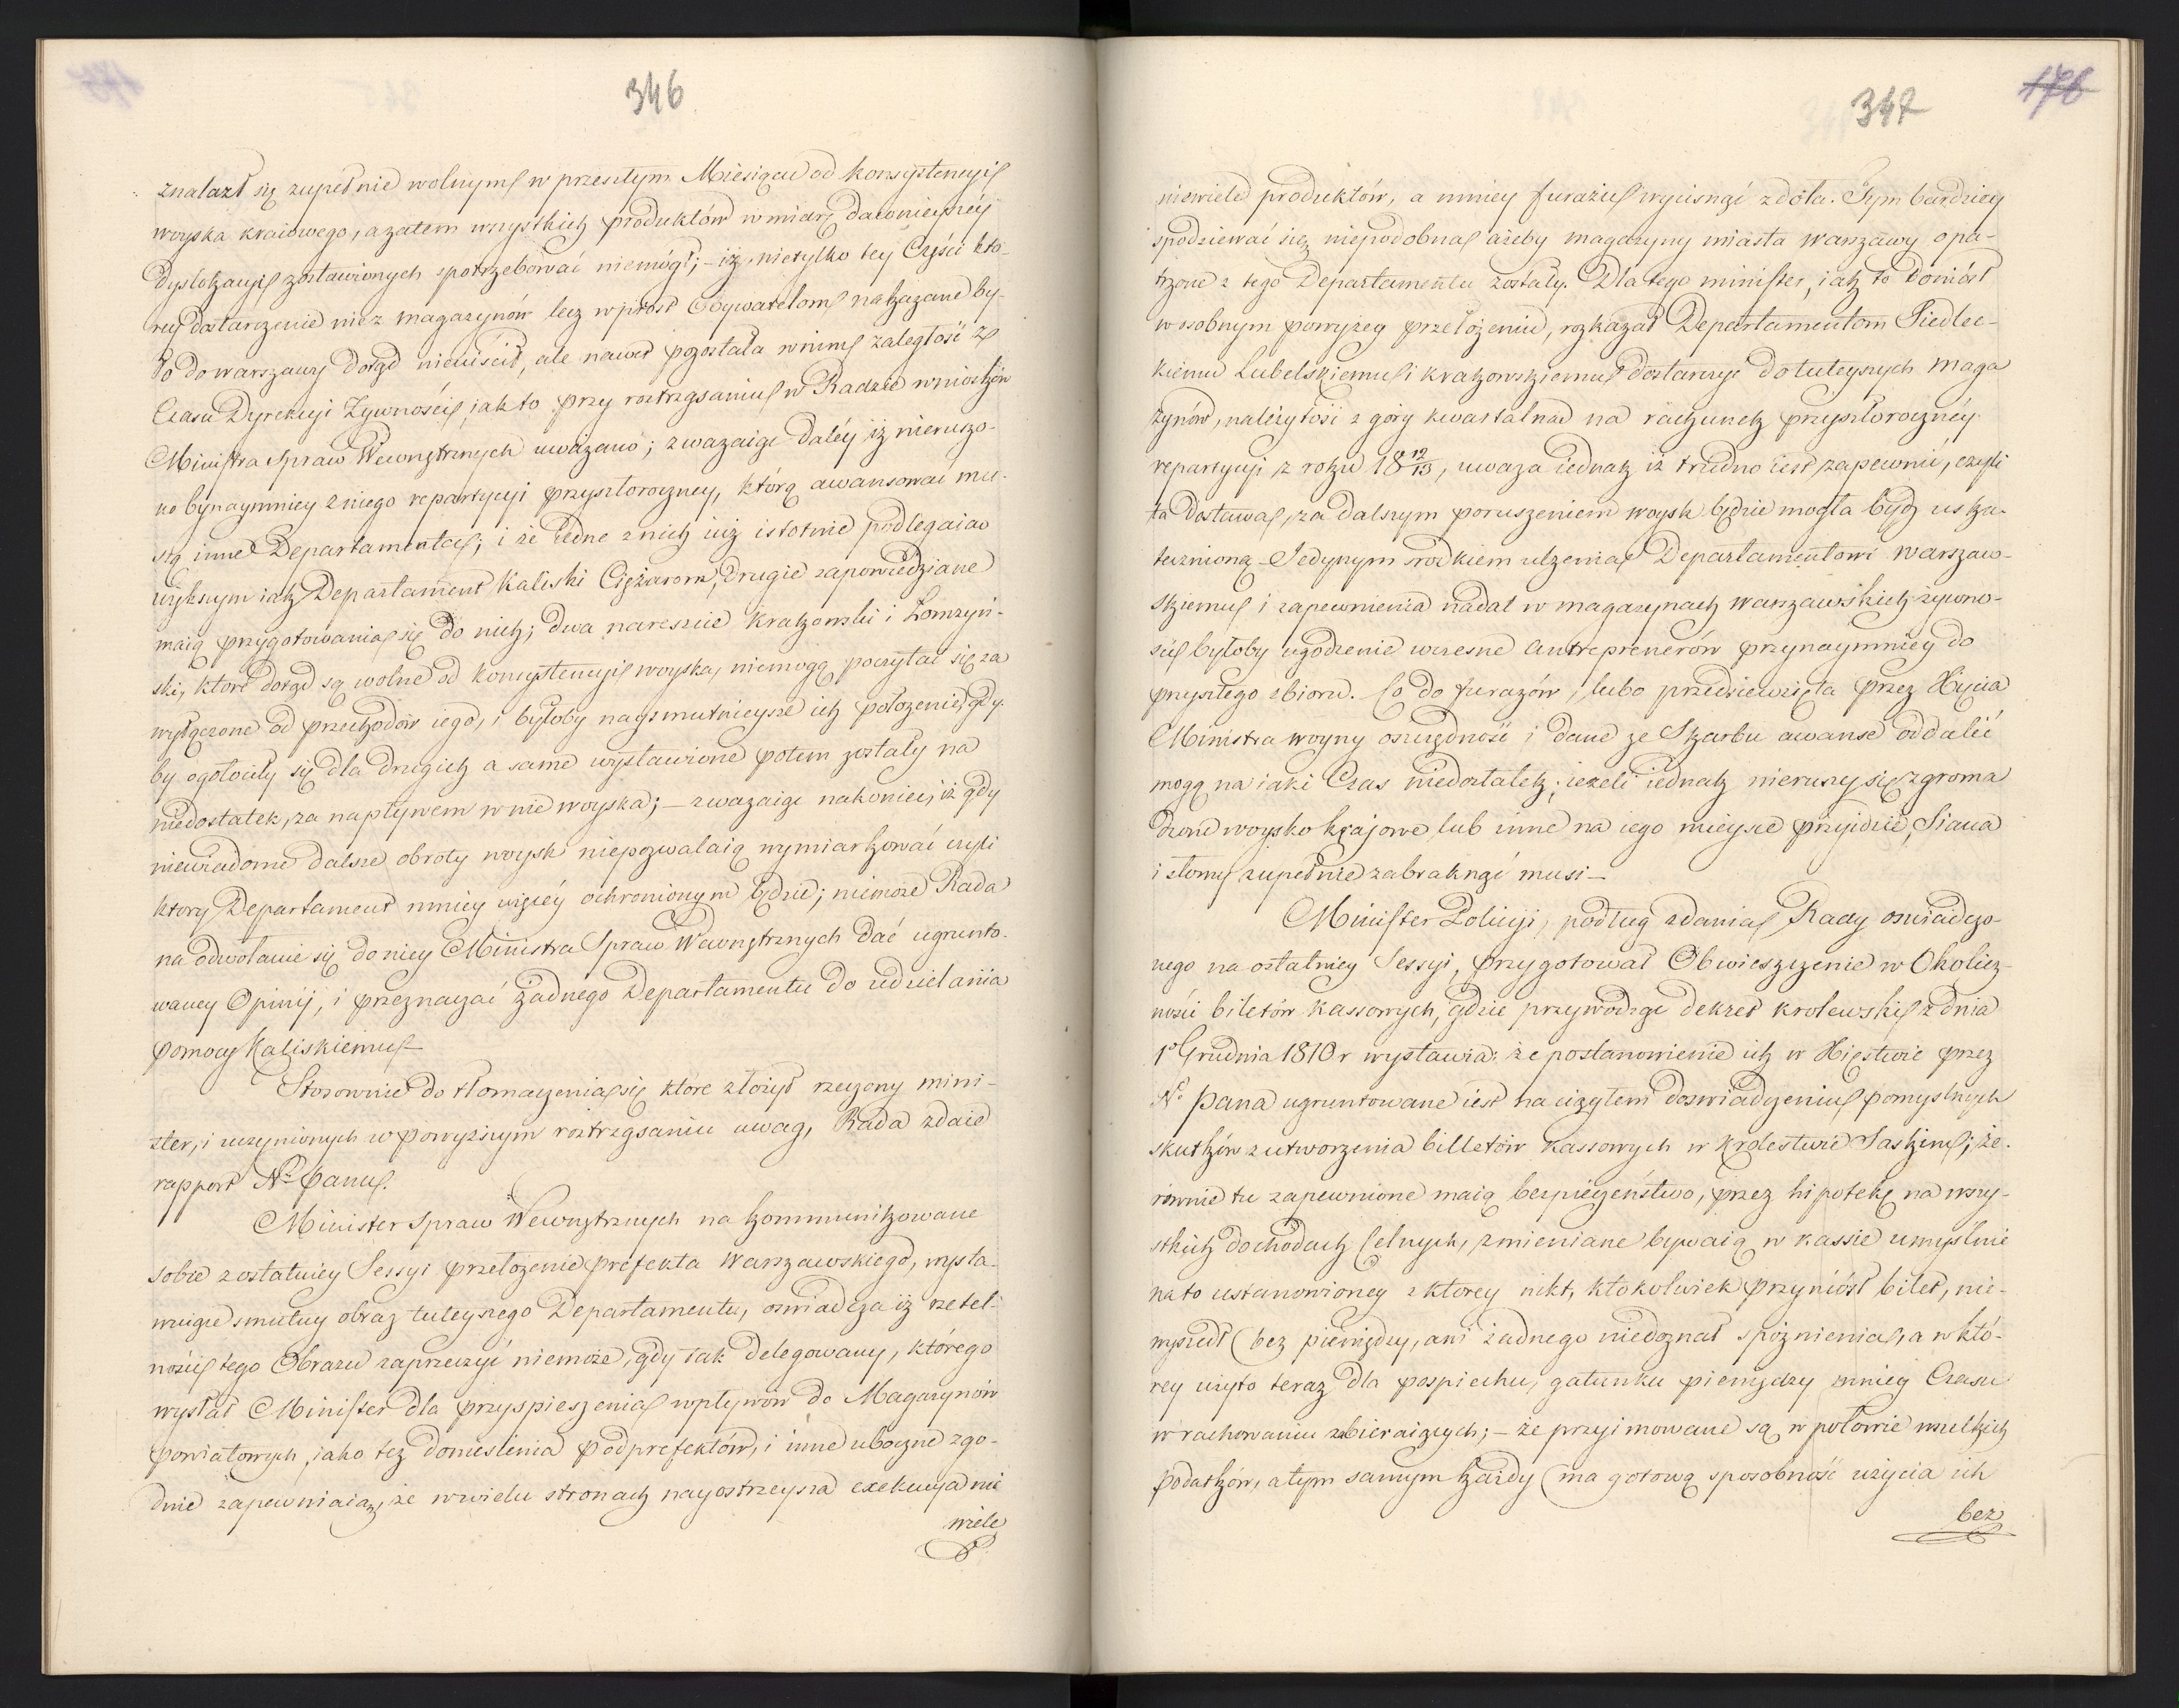 346
znalazł się zupełnie wolnym w przeszłym Miesiącu od konsystencyi
woyska kraiowego, a zatem wszystkich produktów w miarę dawnieyszéy
Dyslokacyi zostawionych spotrzebować niemógł; – iż nietylko tey Części któ-
rey dostarczenie nie z magazynów lecz wprost Obywatelom nakazane by-
ło do warszawy dotąd nieuiścił, ale nawet pozostała w nim zaległość z
Czasu Dyrekcyi Zywności, jak to przy roztrząsaniu w Radzie wniosków
Ministra Spraw Wewnętrznych uważano; zważaiąc daléy iż nieruszo-
no bynaymniey z niego repartycyi przyszłoroczney, którą awansować mu-
szą inne Departamenta; i że iedne z nich iuż istotnie podlegaiąc
wyższym iak Departament Kaliski Ciężarom, drugie zapowiedziane
maią przygotowania się do nich; dwa nareszcie krakowski i Łomżyń-
ski, które dotąd są wolne od konsystencyi woyska, niemogą poczytać się za
wyłączone od przechodów iego, i byłoby naysmutnieysze ich położenie, gdy-
by ogołociły się dla drugich a same wystawione potem zostały na
niedostatek, za napływem w nie woyska; – zważaiąc nakoniec, iż gdy
niewiadome dalsze obroty woysk niepozwalaią wymiarkować czyli
ktory Departament mniey więcéy ochronionym będzie; niemoże Rada
na odwołanie się do niey Ministra Spraw Wewnętrznych dać ugrunto-
waney Opinij, i przeznaczać żadnego Departamentu do udzielania
pomocy Kaliskiemu –
Stosownie do tłomaczenia się które złożył rzeczony mini-
ster, i uczynionych w powyższym roztrząsaniu uwag, Rada zdaie
rapport N. Panu.
Minister Spraw Wewnętrznych na kommunikowane
sobie z ostatniey Sessyi przełożenie prefekta Warszawskiego, wysta-
wuiące smutny obraz tuteyszego Departamentu, oswiadcza iż rzetel-
ności tego Obrazu zaprzeczyć niemoże, gdy tak Delegowany, którego
wysłał Minister dla przyspieszenia wpływów do Magazynów
powiatowych, iako też doniesienia podprefektów, i inne uboczne zgo-
dnie zapewniaią, że w wielu stronach nayostrzeysza exekucya nie
wiele
176
347
niewiele produktów, a mniey furażu wycisnąć zdoła. Tym bardziey
spodziewać się niepodobna ażeby magazyny miasta warszawy opa-
trzone z tego Departamentu zostały. Dla tego minister, iak to doniósł
w osobnym powyżey przełożeniu, rozkazał Departamentom Siedlec-
kiemu Lubelskiemu i krakowskiemu dostarczyć do tuteyszych maga
zynów, należytość z góry kwartalna na rachunek przyszłoroczney
repartycyi z roku 18 12/13, uwaza iednak iż trudno iest zapewnić, czyli
ta dostawa, za dalszym poruszeniem woysk będzie mogła bydź usku-
teczniona – Jedynym srodkiem ulzenia Departamentowi warszaw-
skiemu i zapewnienia nadal w magazynach warszawskich żywno-
ści byłoby ugodzenie wczesne antreprenerów przynaymniey do
przyszłego zbioru. Co do furażów, lubo przedsiewzięta przez Xięcia
Ministra woyny oszczędność i dane ze Skarbu awanse oddalić
mogą na iaki Czas niedostatek; ieżeli iednak nieruszy się zgroma
dzone woysko krajowe lub inne na iego mieysce przyidzie, Siana
i słomy zupełnie zabraknąć musi –
Minister Policyi, podług zdania Rady oswiadczo-
nego na ostatniey Sessyi, przygotował Obwieszczenie w Okolicz-
ności biletów kassowych, gdzie przywodząc dekret krolewski z dnia
1° Grudnia 1810 r wystawia: że postanowienie ich w Xięstwie przez
N. Pana ugruntowane iest na iużytem doswiadczeniu pomyslnych
skutków z utworzenia billetów kassowych w królestwie Saskim; że
równie tu zapewnione maią bezpieczeństwo, przez hipotekę na wszy-
stkich dochodach Celnych, zmieniane bywaią w kassie umyslnie
na to ustanowioney z ktorey nikt, ktokolwiek przyniósł bilet, nie-
wyszedł bez pieniędzy, ani żadnego niedoznał spóźnienia, a w któ-
rey użyto teraz dla pospiechu, gatunku pieniędzy mniey Czasu
w rachowaniu zabieraiących; – że przyimowane są w połowie wszelkich
podatków, a tym samym każdy ma gotową sposobność użycia ich
bez